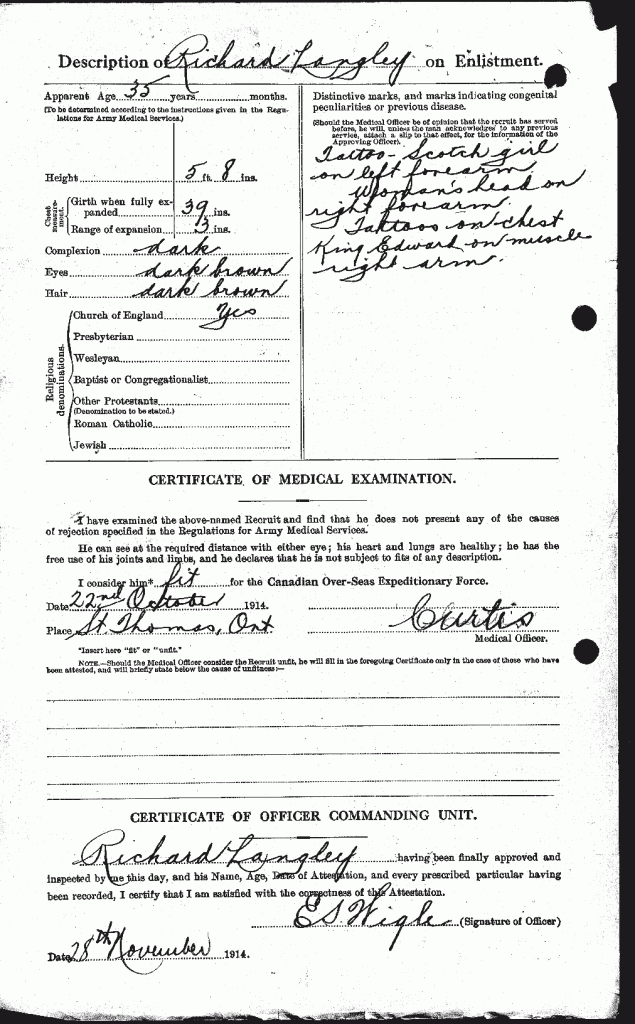 Description of Richard Langley on Enlistment.
Apparent Age 35 years months.
(To be determined according to the instructions given in the Regulations for Army Medical Services.)
Height 5 ft. 8 ins.
Chest measurement.
Girth when fully expanded 39 ins.
Range of expansion 3 ins.
Complexion dark
Eyes dark brown
Hair dark brown
Religious denominations.
Church of England Yes
Presbyterian
Wesleyan
Baptist or Congregationalist
Other Protestants
(Denomination to be stated.)
Roman Catholic
Jewish
Distinctive marks, and marks indicating congenital
peculiarities or previous disease.
(Should the Medical Officer be of opinion that the recruit has served
before, he will, unless the man acknowledges to any previous
service, attach a slip to that effect, for the information of the
Approving Officer).
Tattoo - Scotch girl
on left forearm
Woman's head on
right forearm.
Tattoos on chest
King Edward on muscle
right arm.
CERTIFICATE OF MEDICAL EXAMINATION.
I have examined the above-named Recruit and find that he does not present any of the causes
of rejection specified in the Regulations for Army Medical Services.
He can see at the required distance with either eye; his heart and lungs are healthy; he has the
free use of his joints and limbs, and he declares that he is not subject to fits of any description.
I consider him* fit for the Canadian Over-Seas Expeditionary Force.
Date 22nd October 1914.
Place St. Thomas, Ont
Curtis
Medical Officer.
*Insert here "fit" or "unfit."
NOTE.—Should the Medical Officer consider the Recruit unfit, he will fill in the foregoing Certificate only in the case of those who have
been attested, and will briefly state below the cause of unfitness:—
CERTIFICATE OF OFFICER COMMANDING UNIT.
Richard Langley having been finally approved and
inspected by me this day, and his Name, Age, Date of Attestation, and every prescribed particular having
been recorded, I certify that I am satisfied with the correctness of this Attestation.
E S Wigle (Signature of Officer)
Date 28th November 1914.